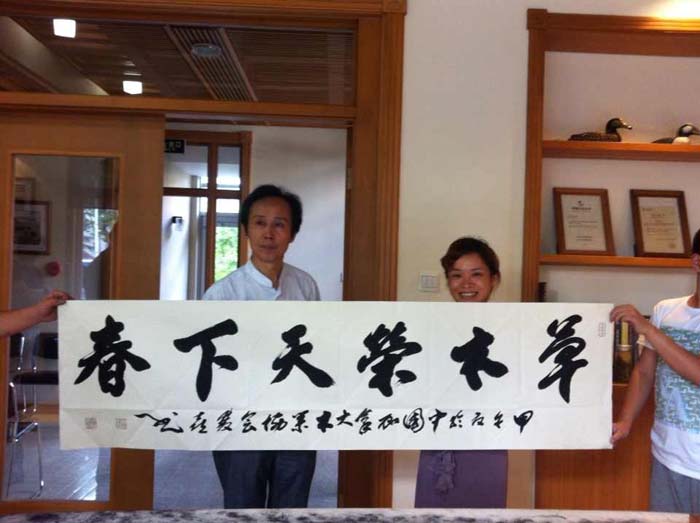 草木榮天下春
甲午於中國加拿大木業協會